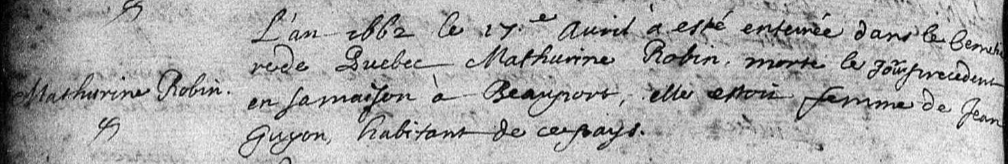 L'an 1662 le 17.e Avril a esté enterrée dans le Cemete
rede Quebec Mathurine Robin. morte le Jour precedent
Mathurine Robin.
en sa maison à Beauport, elle estoit femme de Jean
Guyon, habitant de ce pays.